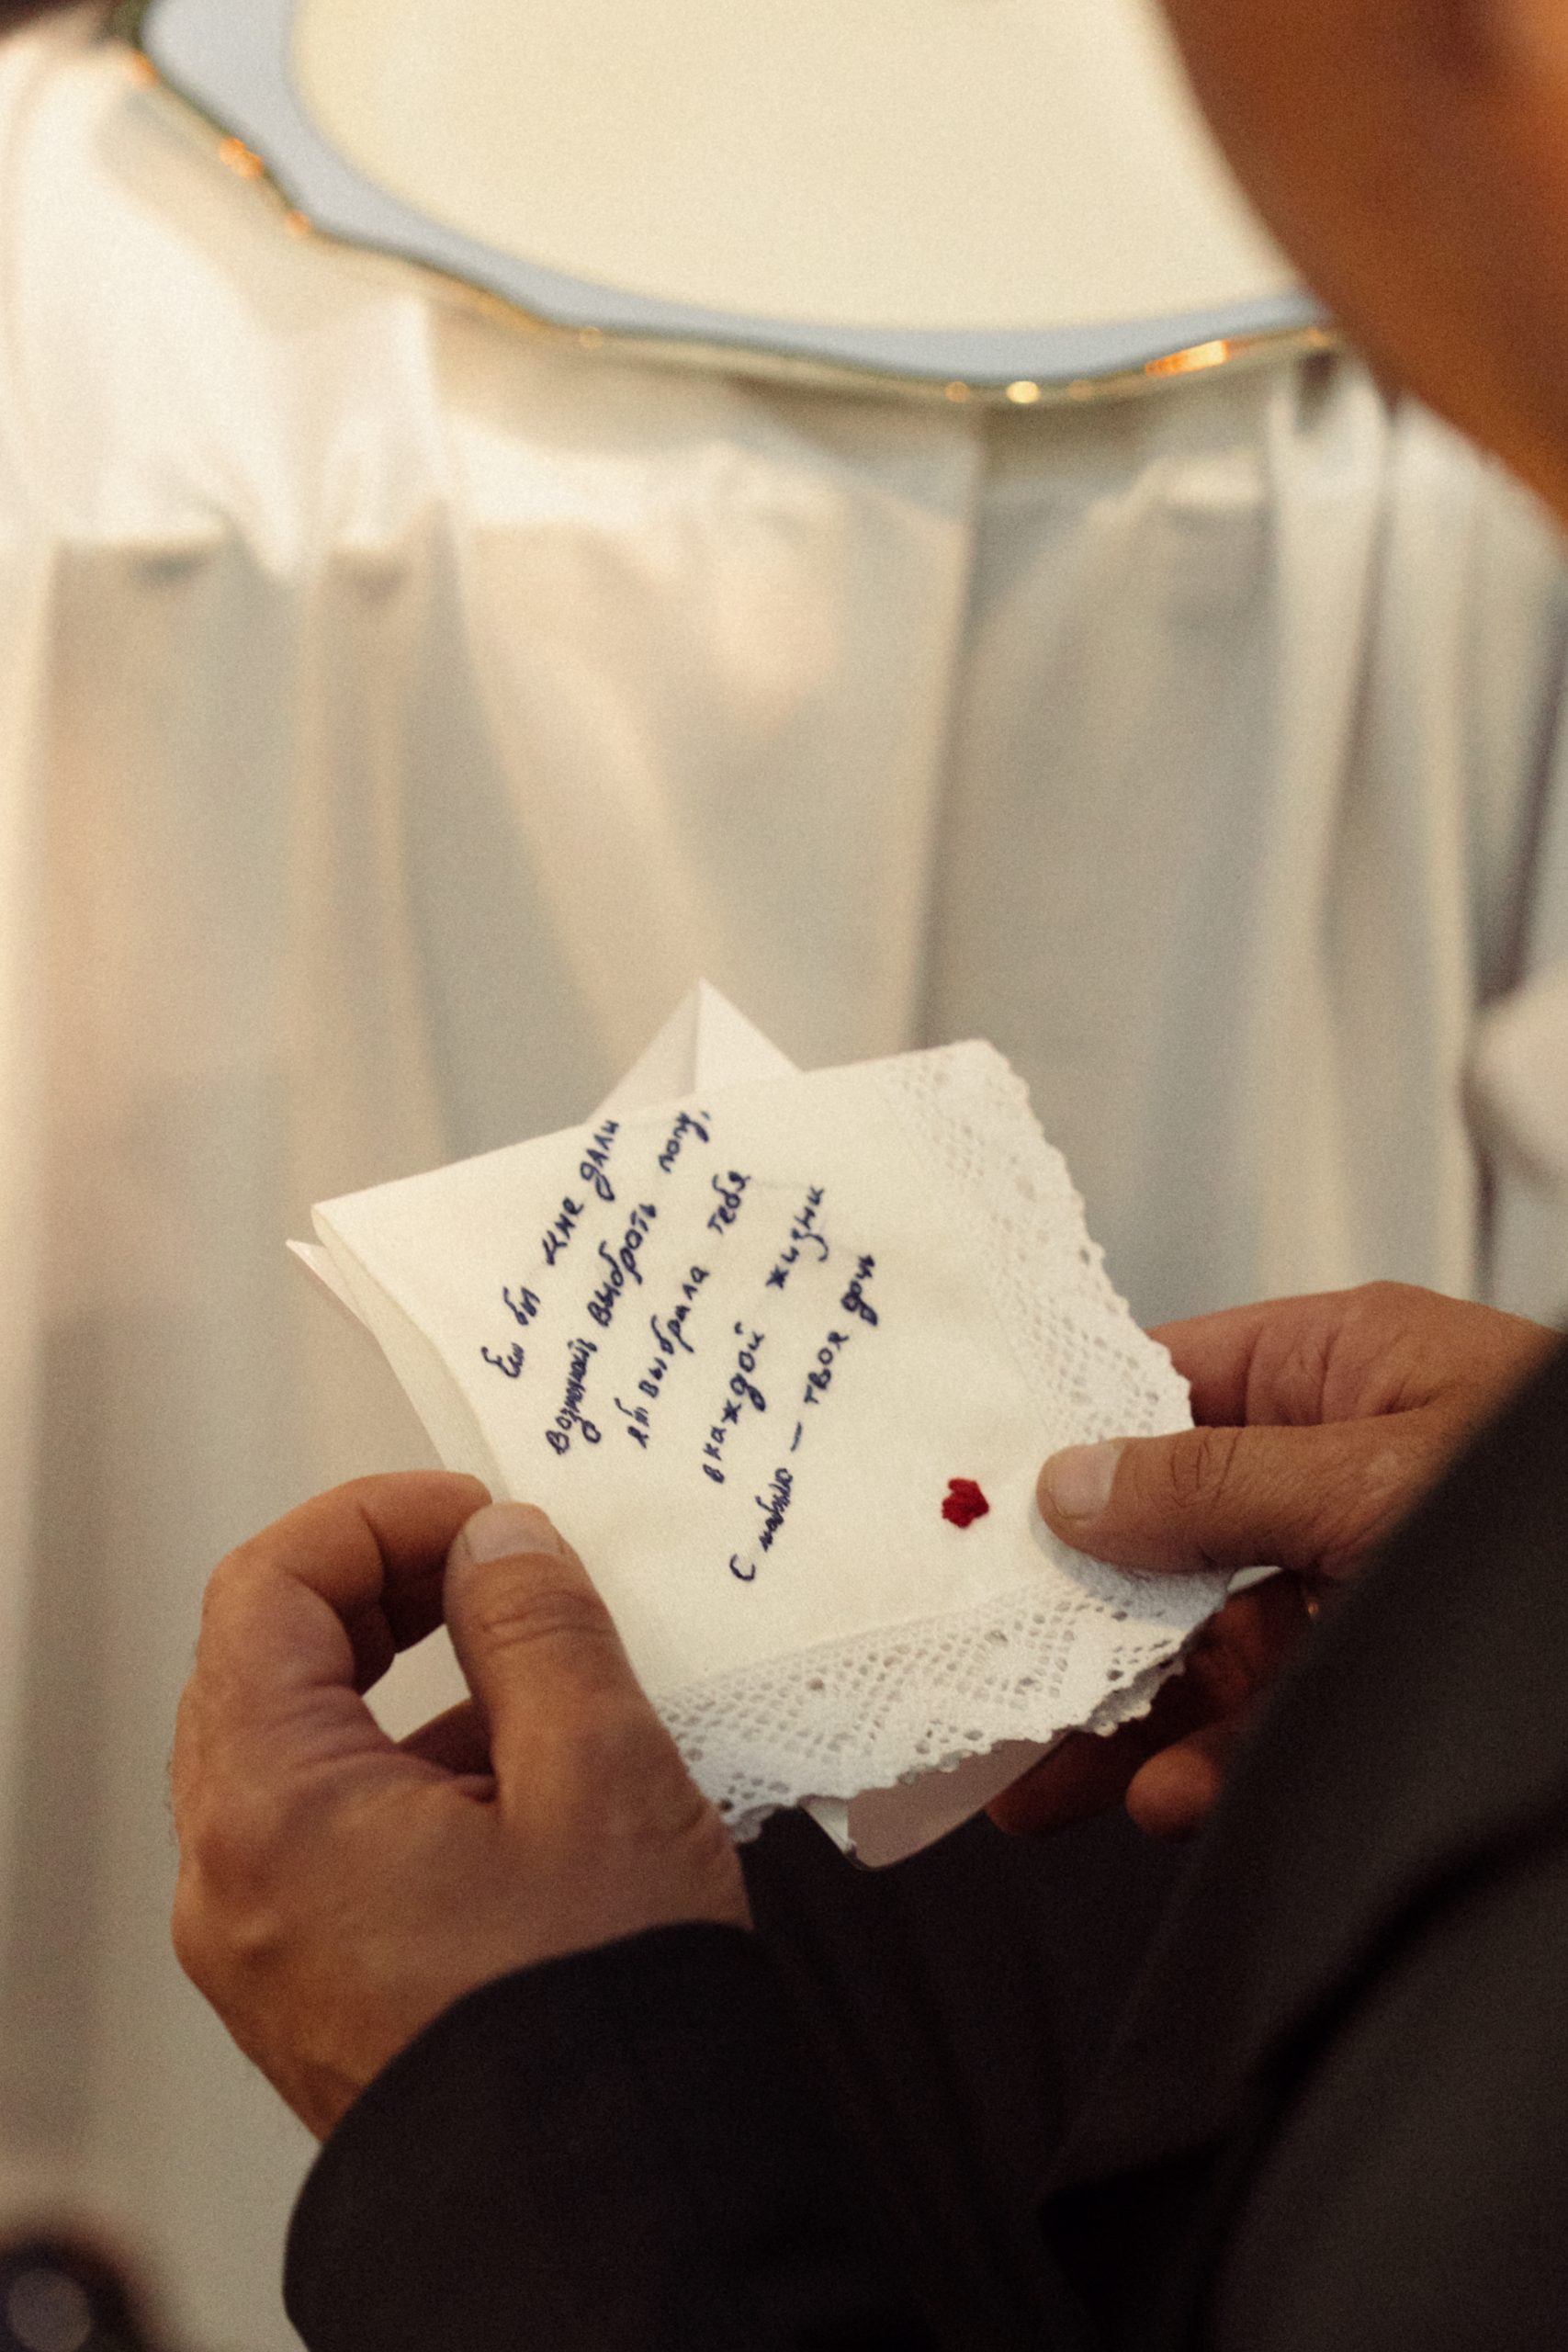 Если бы мне дали
возможность выбрать папу,
я бы выбрала тебя
в каждой жизни
С любовью — твоя дочь